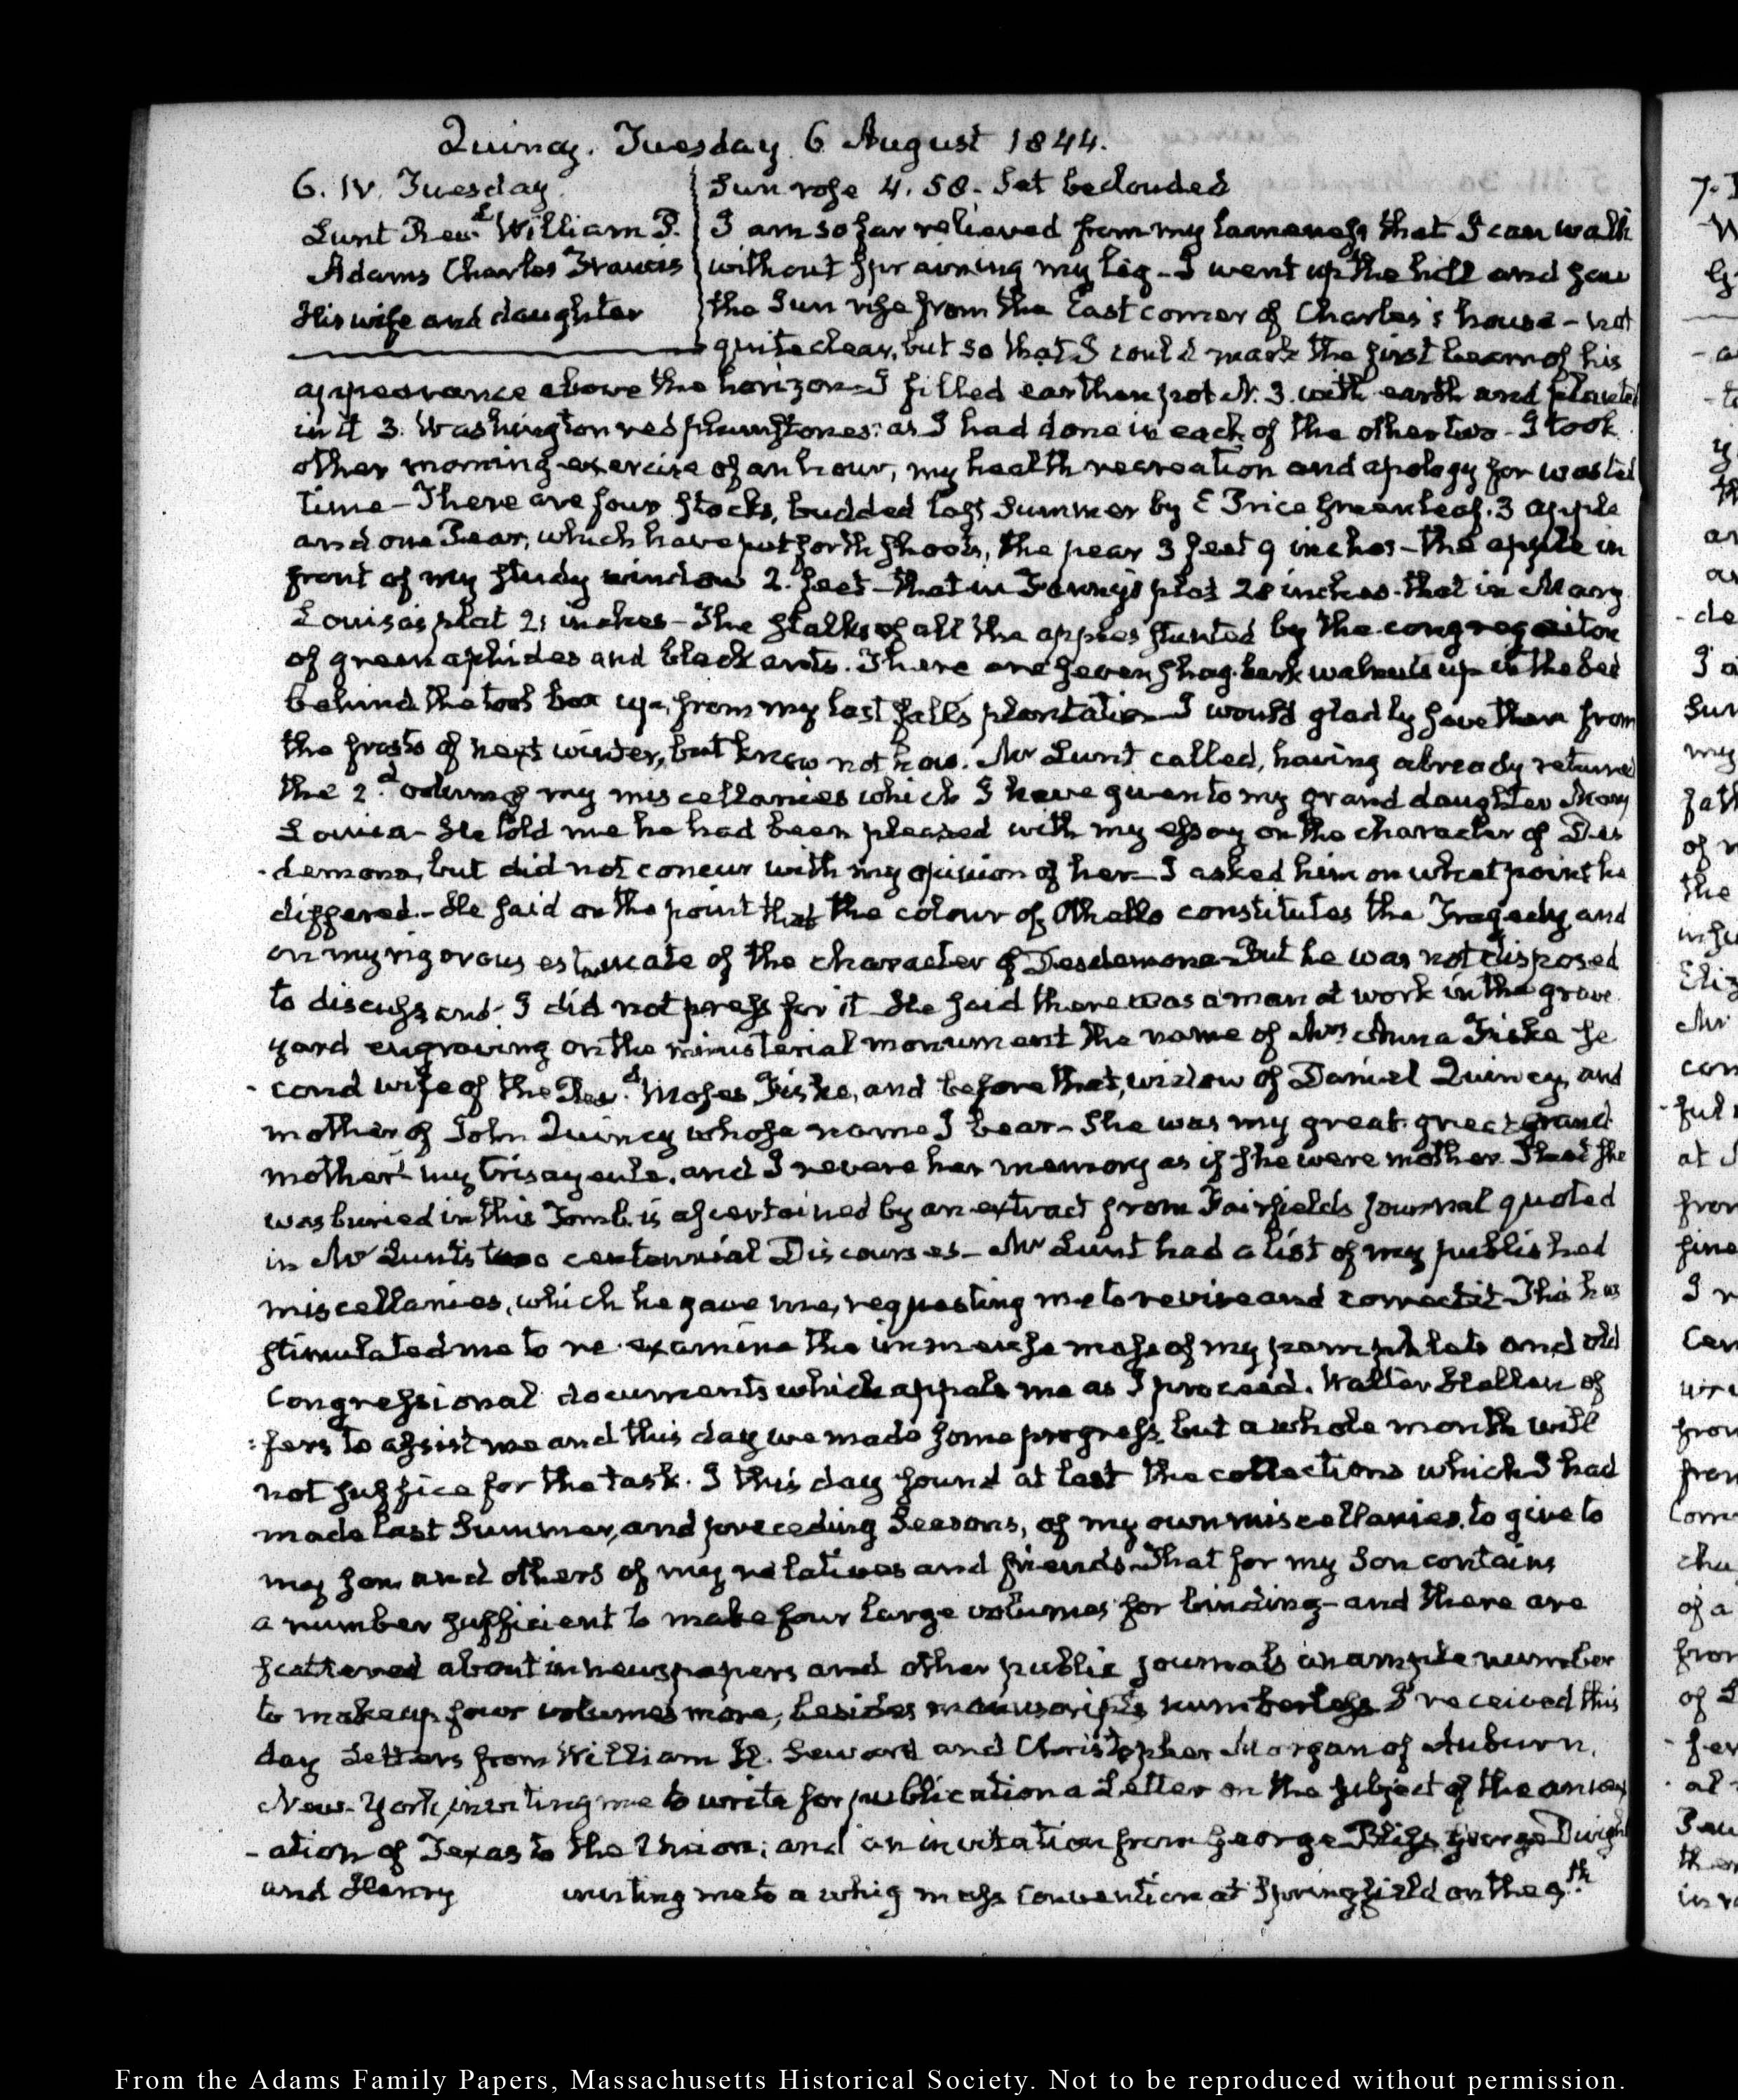 Quincy. Tuesday 6 August 1844.
6. IV. Tuesday
Lunt Revd. William P.
Adams Charles Francis
His wife and daughter
Sun rose 4.58. Set beclouded
I am so far relieved from my lameness that I can walk
without spraining my leg - I went up the hill and saw
the Sun rise from the East corner of Charles's house - not
quite clear, but so that I could mark the first beam of his
appearance above the horizon - I filled earthen pot N. 3. with earth and planted
in it 3. Washington red plumstones: as I had done in each of the other two - I took
other morning exercise of an hour, my health recreation and apology for wasted
time - There are four stocks, budded last Summer by E Price Greenleaf. 3 apple
and one Pear, which have put forth shoots, the pear 3 feet 9 inches - the apple in
front of my study window 2. feet - that in Fanny's plat 28 inches - that in Mary
Louisa's plat 21 inches - The stalks of all the apples stunted by the congregation
of green aphides and black ants. There are seven shag-bark walnuts up in the bed
behind the tool box up, from my last fall's plantation I would gladly save them from
the frosts of next winter, but know not how. Mr Lunt called, having already returned
the 2d. volume of my miscellanies which I have given to my grand daughter Mary
Louisa - He told me he had been pleased with my essay on the character of Des
-demona, but did not concur with my opinion of her - I asked him on what point he
differed - He said on the point that the colour of Othello constitutes the Tragedy and
on my rigorous estimate of the character of Desdemona - But he was not disposed
to discuss and I did not press for it He said there was a man at work in the grave
yard engraving on the ministerial monument the name of Mrs Anna Fiske se
-cond wife of the Revd. Moses Fiske, and before that, widow of Daniel Quincy, and
mother of John Quincy whose name I bear - She was my great great grand
mother my trisayeule, and I revere her memory as if she were mother. That she
was buried in this Tomb is ascertained by an extract from Fairfields journal quoted
in Mr Lunt's two centennial Discourses - Mr Lunt had a list of my published
miscellanies, which he gave me, requesting me to revise and correct it - This has
stimulated me to re-examine the immense mass of my pamphlets and old
Congressional documents which appals me as I proceed. Walter Hellen of
-fers to assist me and this day we made some progress, but a whole month will
not suffice for the task. I this day found at last the collections which I had
made last Summer, and preceding Seasons, of my own miscellanies, to give to
my son and others of my relatives and friends - That for my Son contains
a number sufficient to make four large volumes for binding - and there are
scattered about in newspapers and other public journals an ample number
to make up four volumes more, besides manuscripts numberless I received this
day Letters from William H. Seward and Christopher Morgan of Auburn,
New-York, inviting me to write for publication a Letter on the subject of the annex
-ation of Texas to the Union; and an invitation from George Bliss George Dwight
and Henry inviting me to a whig mass Convention at Springfield on the 9th.
From the Adams Family Papers, Massachusetts Historical Society. Not to be reproduced without permission.